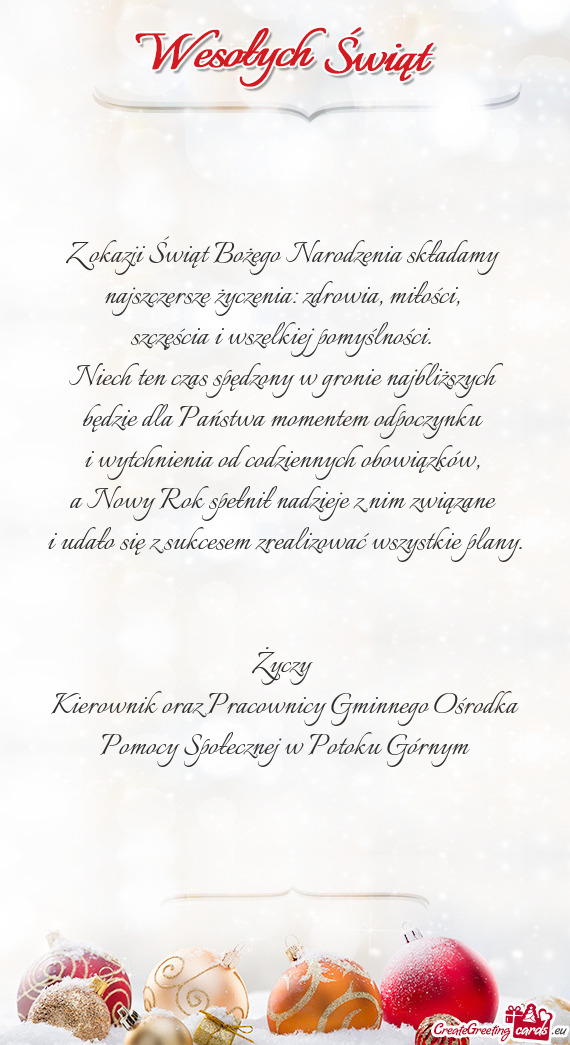 Wesołych Świąt
Z okazji Świąt Bożego Narodzenia składamy
najszczersze życzenia: zdrowia, miłości,
szczęścia i wszelkiej pomyślności.
Niech ten czas spędzony w gronie najbliższych
będzie dla Państwa momentem odpoczynku
i wytchnienia od codziennych obowiązków,
a Nowy Rok spełnił nadzieje z nim związane
i udało się z sukcesem zrealizować wszystkie plany.
Życzy
Kierownik oraz Pracownicy Gminnego Ośrodka
Pomocy Społecznej w Potoku Górnym
CreateGreeting cards .eu